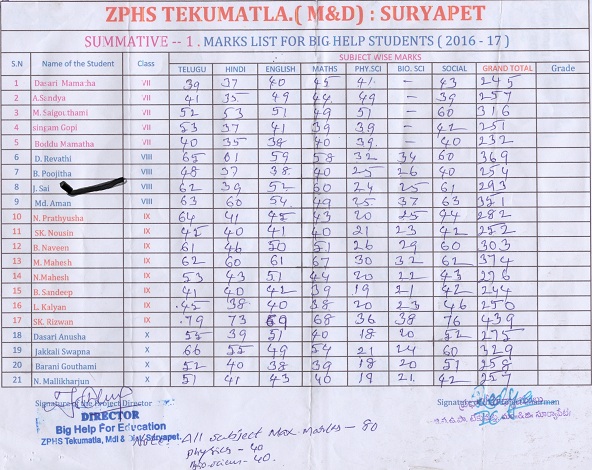 ZPHS TEKUMATLA.( M&D) : SURYAPET
SUMMATIVE -- 1 . MARKS LIST FOR BIG HELP STUDENTS ( 2016 - 17 )
S.N Name of the Student Class SUBJECT WISE MARKS
TELUGU HINDI ENGLISH MATHS PHY.SCI BIO. SCI SOCIAL GRAND TOTAL Grade
1 Dasari Mamatha VII 39 37 40 45 41 - 43 245
2 A.Sandya VII 41 35 49 44 49 - 39 257
3 M. Saigouthami VII 52 53 51 49 51 - 60 316
4 singam Gopi VII 53 37 41 39 39 - 42 251
5 Boddu Mamatha VII 40 35 38 40 39 - 40 232
6 D. Revathi VIII 65 61 59 58 32 34 60 369
7 B. Poojitha VIII 48 37 38 40 25 26 40 254
8 J. Sai VIII 62 39 52 60 24 25 61 293
9 Md. Aman VIII 63 60 54 49 25 37 63 351
10 N. Prathyusha IX 64 41 45 43 20 25 44 282
11 SK. Nousin IX 45 40 41 40 21 23 42 252
12 B. Naveen IX 61 46 50 51 26 29 60 303
13 M. Mahesh IX 62 60 61 67 30 32 62 374
14 N.Mahesh IX 53 43 51 44 20 22 43 276
15 B. Sandeep IX 41 40 42 39 19 21 42 244
16 L. Kalyan IX 45 38 40 38 20 23 46 250
17 SK. Rizwan IX 79 73 69 68 36 38 76 439
18 Dasari Anusha X 55 39 51 40 18 20 52 275
19 Jakkali Swapna X 66 55 49 54 21 24 60 329
20 Barani Gouthami X 52 40 38 39 18 20 51 258
21 N. Mallikharjun X 51 41 43 40 19 21 42 257
Signature of the Project Director
DIRECTOR
Big Help For Education
ZPHS Tekumatla, Mdl & Dist. Suryapet.
Note: All subject Max. Marks - 80
physics - 40
Bio. science - 40.